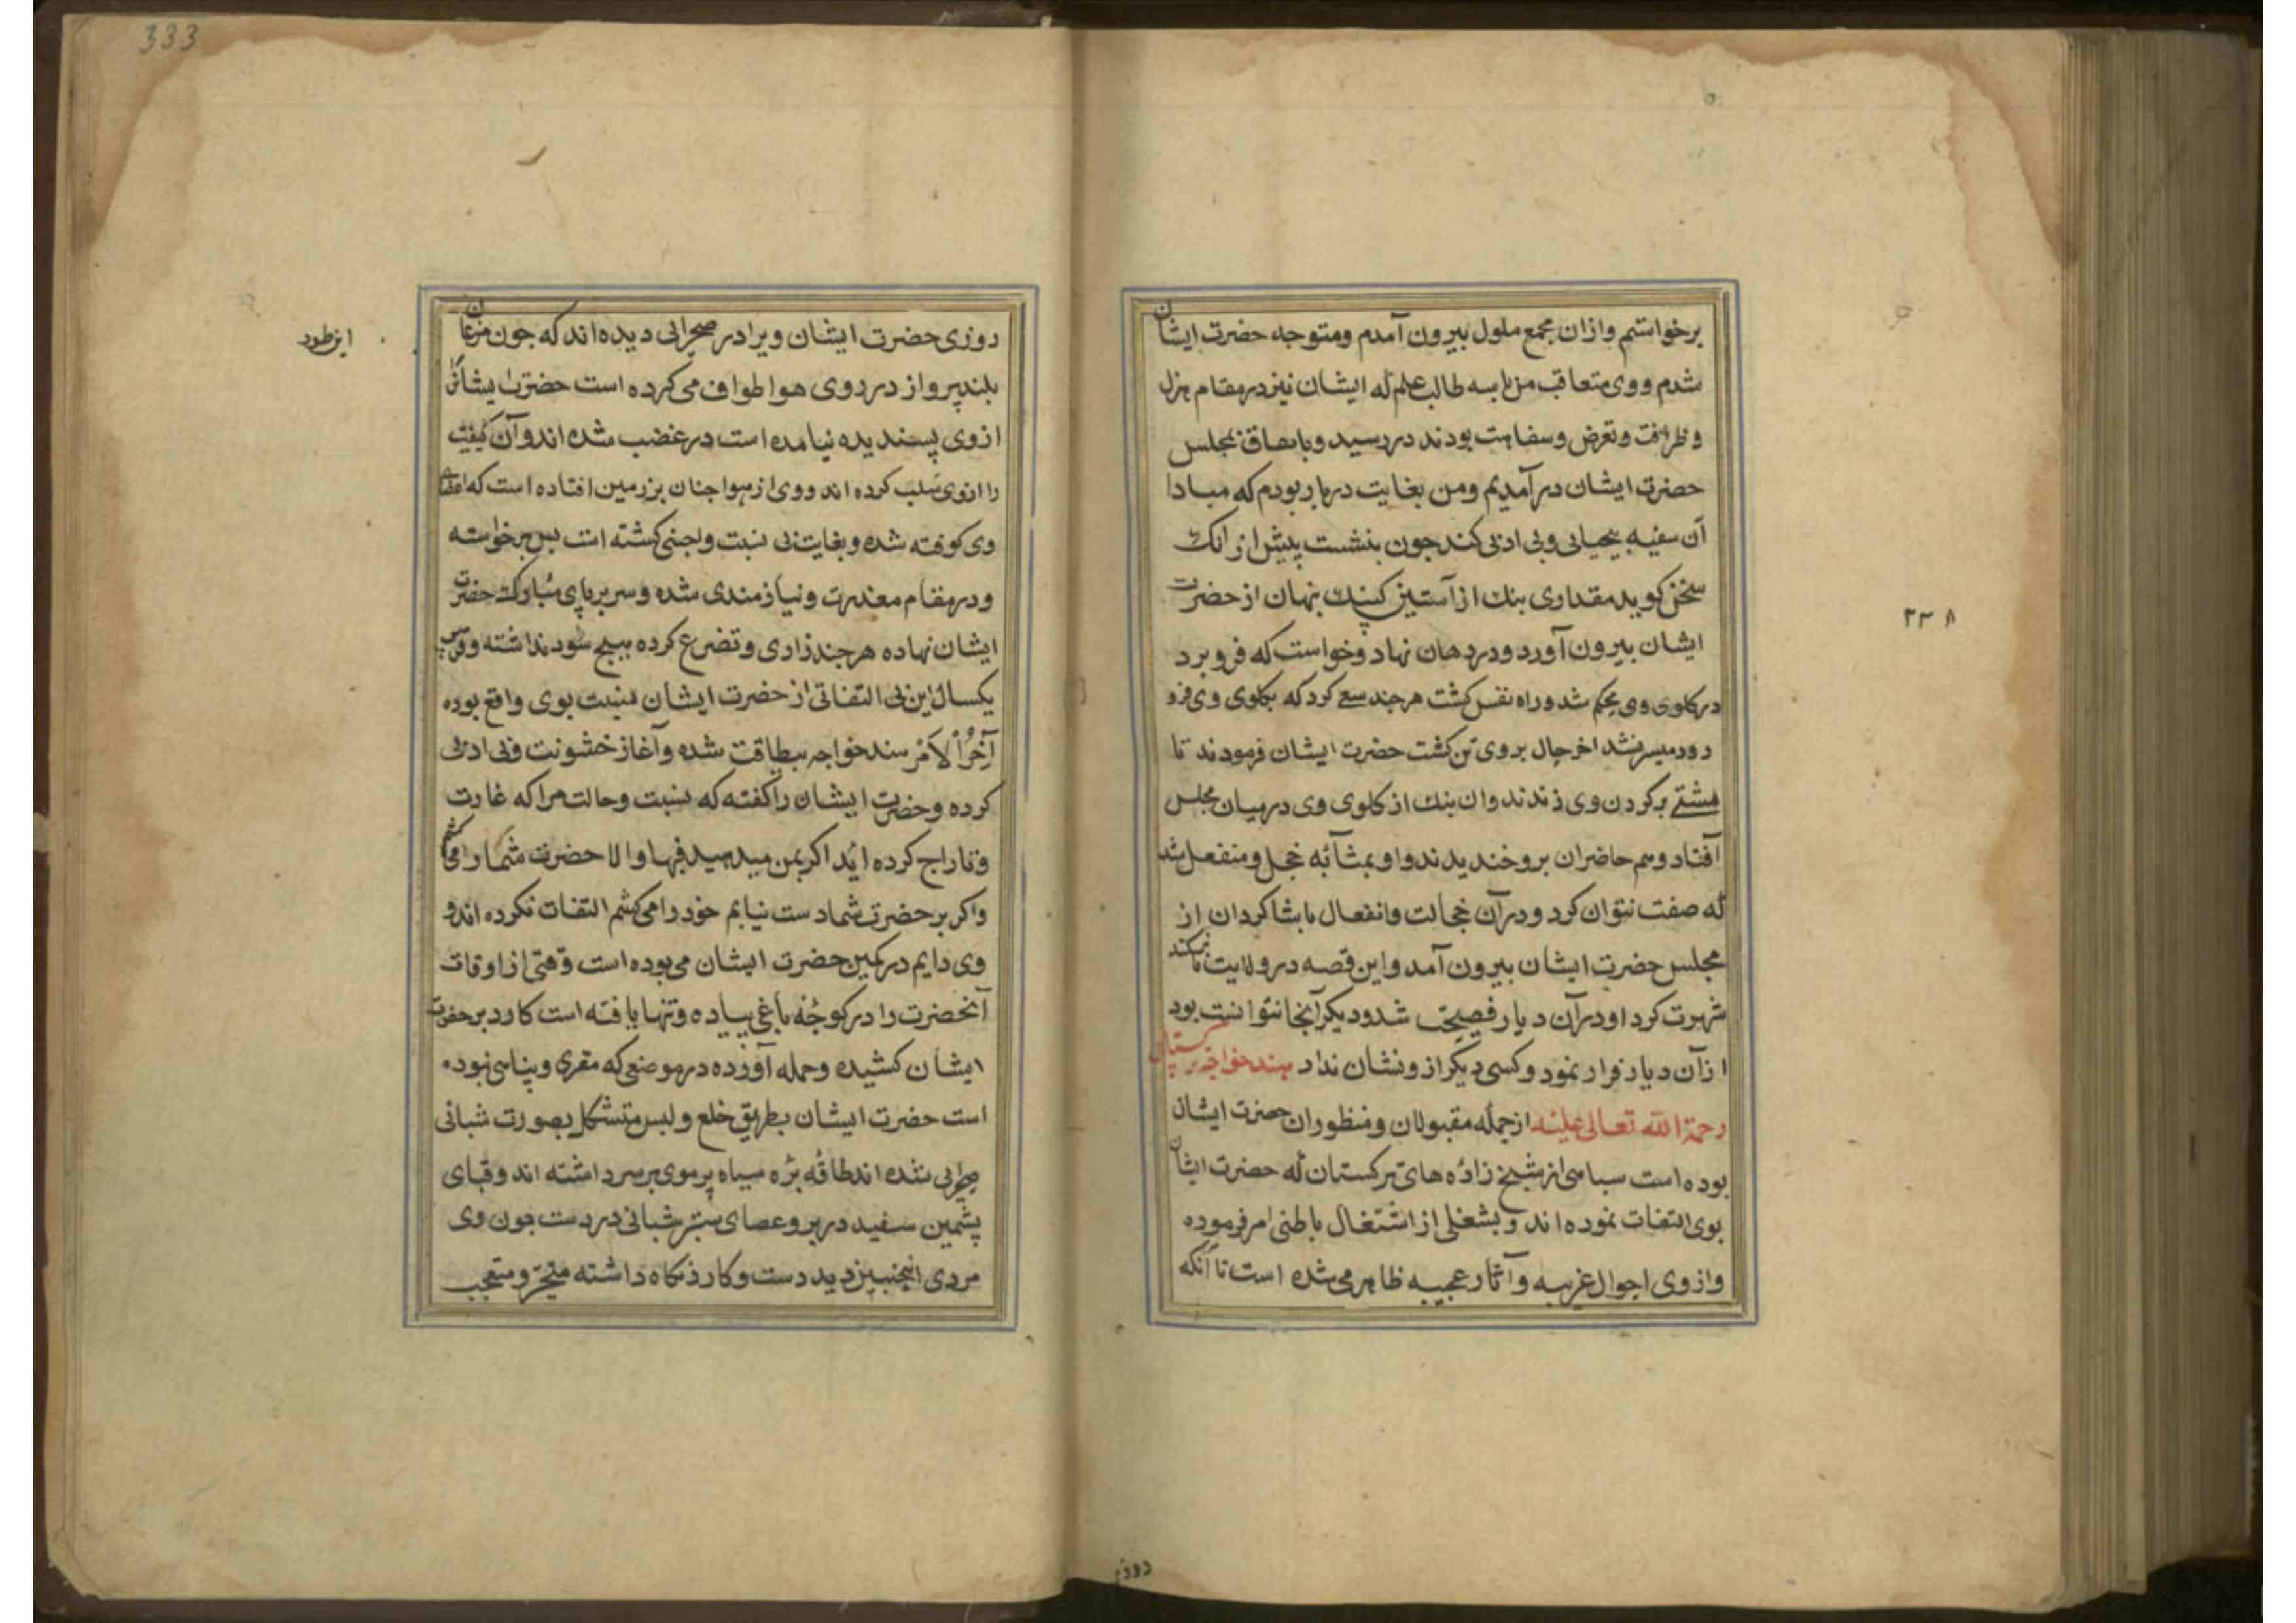 برخواستم وازان مجمع ملول بیرون آمدم ومتوجه حضرت ایشان
شدم ووی متعاقب من با سه طالب علم که ایشان نیز در مقام هزل
وظرافت وتعرض وسفاهت بودند در رسید وباتفاق بمجلس
حضرت ایشان در آمدیم ومن بغایت در بار بودم که مبادا
آن سفیه بیحیایی وبی ادبی کند جون بنشست پیش از انک
سخن کوید مقداری بنک از آستین کپنک پنهان از حضرت
ایشان بیرون آورد ودر دهان نهاد وخواست که فرو برد
در کلوی وی محکم شد وراه نفس کشت هر جند سعی کرد که بکلوی وی فرو
رود میسر نشد اخر حال بر وی تن کشت حضرت ایشان فرمودند تا
مشتی بر کردن وی زدند وان بنک از کلوی وی در میان مجلس
آفتاد وهم حاضران برو خندیدند واو بمثابه خجل ومنفعل شد
که صفت نتوان کرد ودر آن خجالت وانفعال با شاکردان از
مجلس حضرت ایشان بیرون آمد واین قصه در ولایت تاشکند
شهرت کرد اودر آن دیار فضیحت شد ودیکر آنجا نتوانست بود
از آن دیار فرار نمود وکسی دیکر ازو نشان نداد هند خواجه ترکستانی
رحمة الله تعالی علیه از جمله مقبولان ومنظوران حضرت ایشان
بوده است سبا می از شیخ زاده های ترکستان که حضرت ایشان
بوی التفات نموده اند وبشغلی از اشتغال باطنی امر فرموده
واز وی احوال غریبه وآثار عجیبه ظاهر می شده است تا آنکه
روزی
۲۲۸
333
روزی حضرت ایشان ویرا در صحرایی دیده اند که جون مرغان
بلند پرواز در روی هوا طواف می کرده است حضرت ایشانرا
از وی پسندیده نیامده است در غضب شده اند وآن کیفیت
را ازوی سلب کرده اند ووی از هوا جنان بر زمین افتاده است که اعضای
وی کوفته شده وبغایت بی نسبت ولجنی کشته است پس برخواسته
ودر مقام معذرت ونیازمندی شده وسر بر پای مبارک حضرت
ایشان نهاده هر جند زاری وتضرع کرده هیچ سود نداشته وقریب
یکسال این بی التفاتی از حضرت ایشان نسبت بوی واقع بوده
آخر الامر هند خواجه بیطاقت شده وآغاز خشونت وبی ادبی
کرده وحضرت ایشان را کفته که نسبت وحالت مرا که غارت
وتاراج کرده اید اکر بمن میدهید فبها والا حضرت شما را می کشم
واکر بر حضرت شما دست نیابم خود را می کشم التفات نکرده اند و
وی دایم در کمین حضرت ایشان می بوده است وقتی از اوقات
آنحضرت را در کوچه باغی پیاده وتنها یافته است کارد بر حضرت
ایشان کشیده وحمله آورده در موضعی که مقری وپناهی نبوده
است حضرت ایشان بطریق خلع ولبس متشکل بصورت شبانی
صحرایی شده اند طاقه بره سیاه پر موی بر سر داشته اند وقبای
پشمین سفید در بر وعصای ستبر شبانی در دست جون وی
مردی اینجنین دید دست وکارد نکاه داشته متحیر ومتعجب
این طور